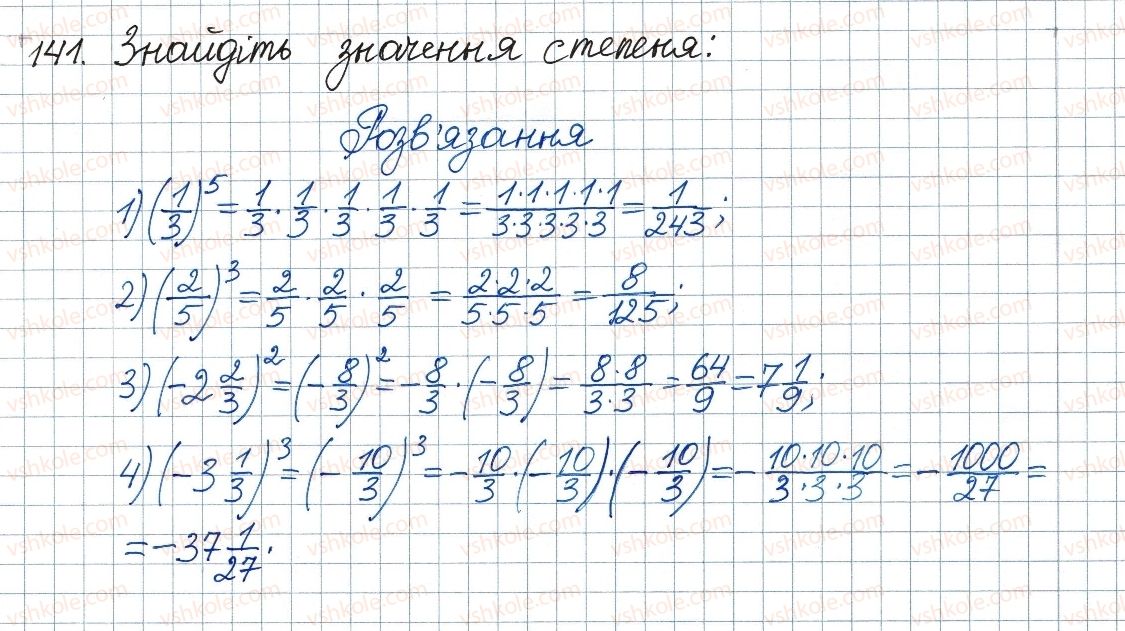 141. Знайдіть значення степеня:
Розв'язання
1) (1/3)^5 = 1/3 · 1/3 · 1/3 · 1/3 · 1/3 = 1·1·1·1·1/3·3·3·3·3 = 1/243;
2) (2/5)^3 = 2/5 · 2/5 · 2/5 = 2·2·2/5·5·5 = 8/125;
3) (-2 2/3)^2 = (-8/3)^2 = -8/3 · (-8/3) = 8·8/3·3 = 64/9 = 7 1/9;
4) (-3 1/3)^3 = (-10/3)^3 = -10/3 · (-10/3) · (-10/3) = -10·10·10/3·3·3 = -1000/27 =
= -37 1/27.